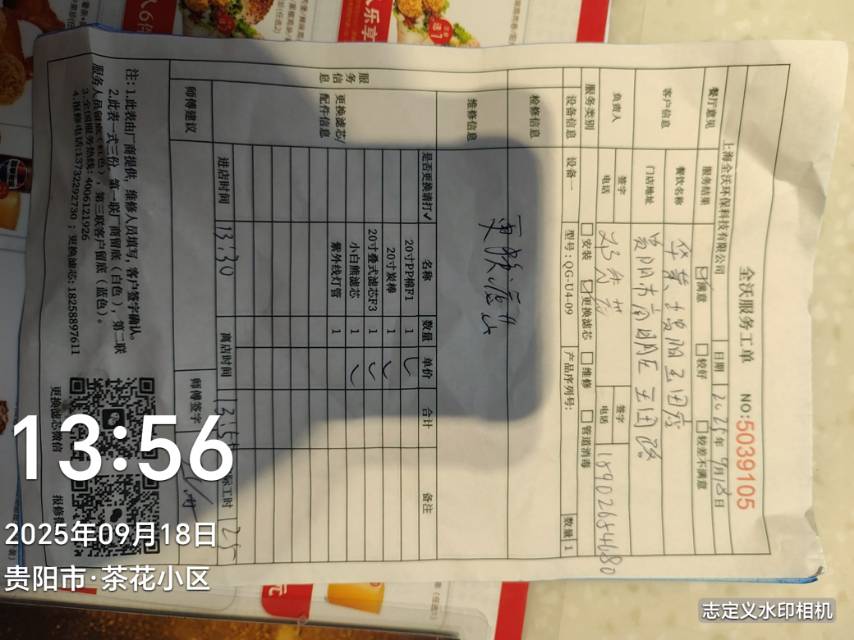 全沃服务工单 NO:5039105
上海全沃环保科技有限公司 日期 2025年9月18日
餐厅意见 服务结果 ☑满意 □较好 □较差不满意
客户信息 餐饮名称 华莱士贵阳玉田店
门店地址 贵阳市南明区玉田路
负责人 签字 签字
电话 电话 18902684680
服务类别 □安装 ☑更换滤芯 □维修 □管道消毒
设备信息 设备一 型号:QG-U4-09 产品序列号: 数量 1
检修信息
维修信息 更换滤芯
服务信息
更换滤芯/配件信息 是否更换请打√ 名称 数量 单价 合计 备注
20寸PP棉F1 1 ✓
20寸炭棒 1 ✓
20寸叠式滤芯F3 1 ✓
小白熊滤芯 1 ✓
紫外线灯管 1
进店时间 13:30 离店时间 工时 25
师傅建议 师傅签字
注:1.此表由厂商提供,维修人员填写,客户签字确认。
2.此表一式三份,第一联厂商留底(白色),第二联
服务人员留底(红色),第三联客户留底(蓝色)。
3.全国服务热线:4006121926
4.报修电话:13732292730;更换滤芯:18258897611
更换滤芯微信 报修
13:56
2025年09月18日
贵阳市·茶花小区
志定义水印相机